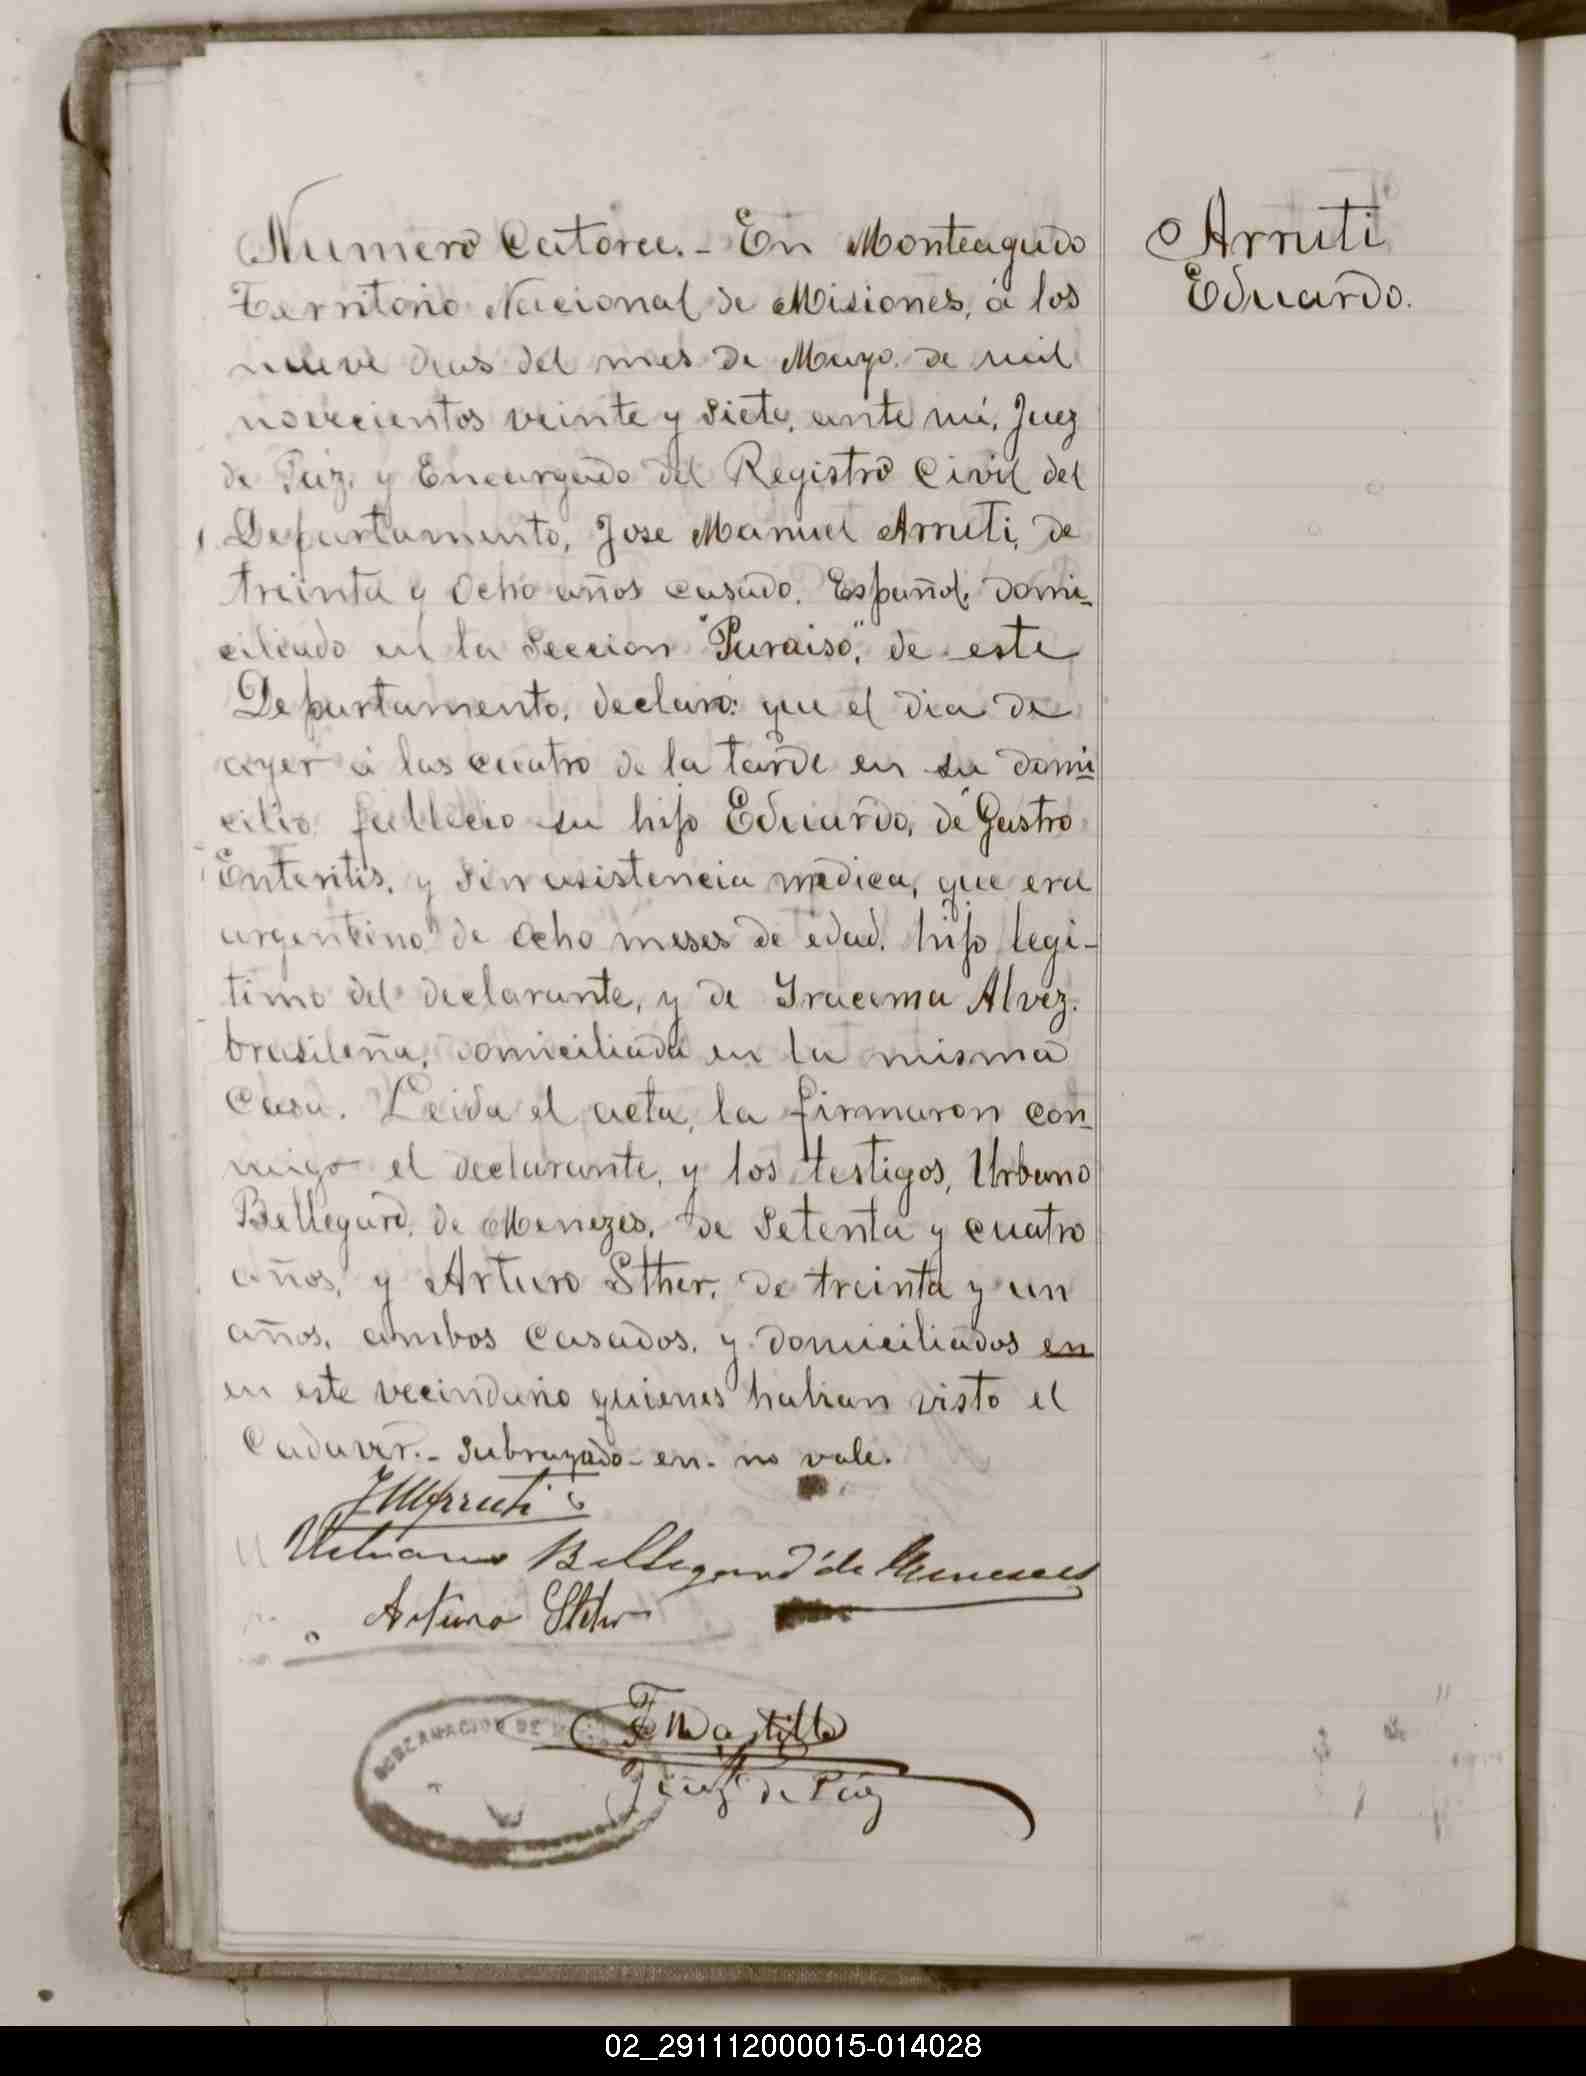 Numero Catorce.- En Monteagudo
Territorio Nacional de Misiones, á los
nueve dias del mes de Mayo. de mil
novecientos veinte y siete, ante mí, Juez
de Paz, y Encargado del Registro Civil del
Departamento, Jose Manuel Arruti, de
treinta y ocho años casado. Español, domi-
ciliado en la Seccion "Paraiso", de este
Departamento, declaró: que el dia de
ayer á las cuatro de la tarde en su domi-
cilio fallecio su hijo Eduardo, de Gastro
Enteritis, y sin asistencia medica, que era
argentino de ocho meses de edad, hijo legi-
timo del declarante, y de Iracema Alvez.
brasileña, domiciliada en la misma
casa. Leida el acta, la firmaron con-
migo el declarante, y los testigos, Urbano
Bellegard, de Menezes, de Setenta y cuatro
años, y Arturo Sther, de treinta y un
años, ambos casados, y domiciliados en
en este vecindario quienes habian visto el
Cadaver.- Subrayado- en- no vale.
JMArruti
Urbano Bellegard de Menezes
Arturo Sther
Juez de Paz
GOBERNACION DE
Arruti
Eduardo.
02_291112000015-014028